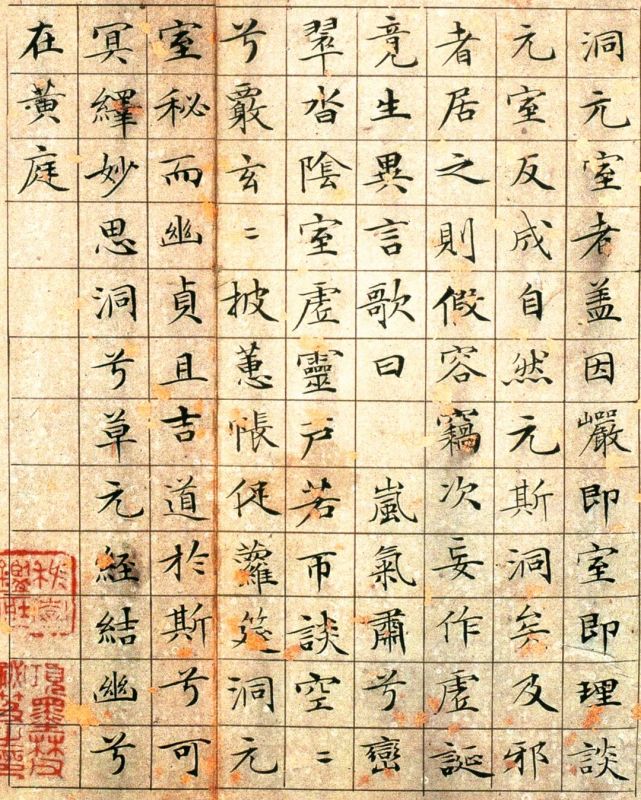 洞元室者盖因巗即室即理談
元室反成自然元斯洞矣及邪
者居之則假容竊次妄作虛誕
竟生異言歌曰　嵐氣肅兮巒
翠沓陰室虛靈戶若帀談空〻
兮覈玄〻披蕙帳促蘿筵洞元
室秘而幽貞且吉道於斯兮可
冥繹妙思洞兮草元經結幽兮
在黃庭
項墨林父
秘笈之印